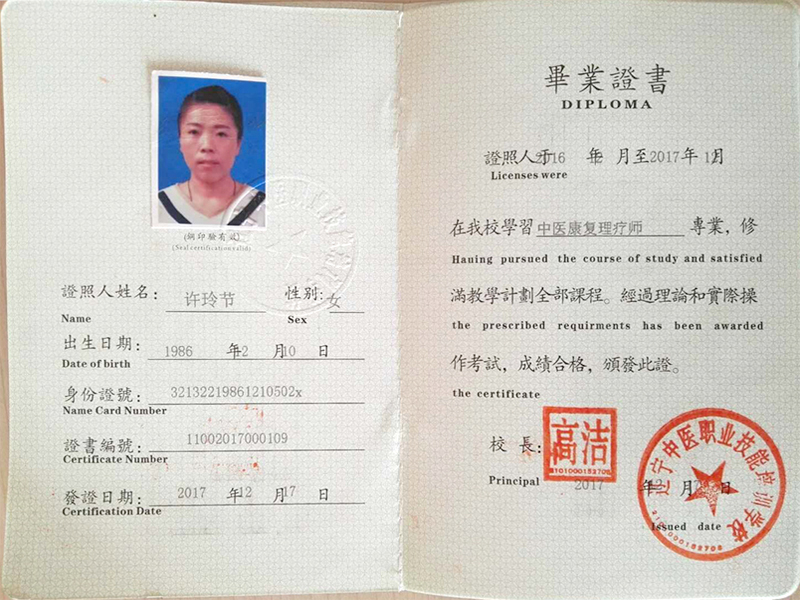 (鋼印驗有效)
(Seal certification valid)
證照人姓名：许玲节 性別：女
Name Sex
出生日期：1986 年12 月10 日
Date of birth
身份證號：32132219861210502x
Name Card Number
證書編號：11002017000109
Certificate Number
發證日期：2017 年12 月17 日
Certification Date
畢業證書
DIPLOMA
證照人于2016 年 月至2017年12月
Licenses were
在我校學習中医康复理疗师 專業，修
Hauing pursued the course of study and satisfied
滿教學計劃全部課程。經過理論和實際操
the prescribed requirments has been awarded
作考試，成績合格，頒發此證。
the certificate
校長：高洁
Principal
2017 年 月 日
Issued date
辽宁中医职业技能培训学校